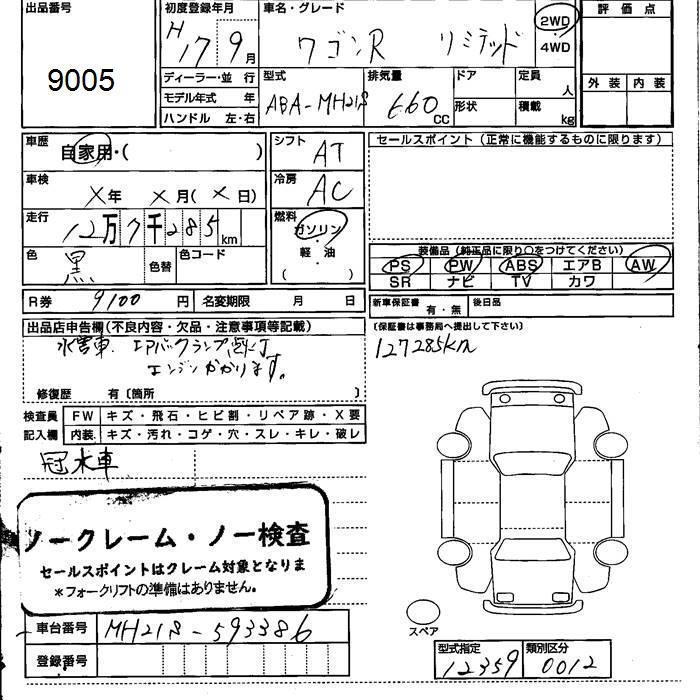 出品番号
9005
初度登録年月
H17 9月
ディーラー・並 行
モデル年式 年
ハンドル 左・右
車名・グレード
ワゴンR リミテッド
2WD
・
4WD
型式
ABA-MH21S
排気量
660
CC
ドア
形状
定員
人
積載
kg
評価点
外装 内装
車歴
自家用・( )
車検
X年 X月( X 日)
走行
12万7千285km
色
黒
色替
色コード
シフト
AT
冷房
AC
燃料
ガソリン
・
軽・油
( )
セールスポイント (正常に機能するものに限ります)
装備品 (純正品に限り○をつけてください)
PS PW ABS エアB AW
SR ナビ TV カワ
R券 9100 円 名変期限 月 日
新車保証書 有・無 後日品
(保証書は事務局へ提出して下さい)
127285km
出品店申告欄(不良内容・欠品・注意事項等記載)
水害車. エアバックランプ点灯
エンジンかかります。
修復歴 有〔箇所 〕
検査員 FW キズ・飛石・ヒビ割・リペア跡・X要
記入欄 内装 キズ・汚れ・コゲ・穴・スレ・キレ・破レ
冠水車
ノークレーム・ノー検査
セールスポイントはクレーム対象となりま
*フォークリフトの準備はありません。
車台番号 MH21S-593386
登録番号
スペア
型式指定 12359
類別区分 0012